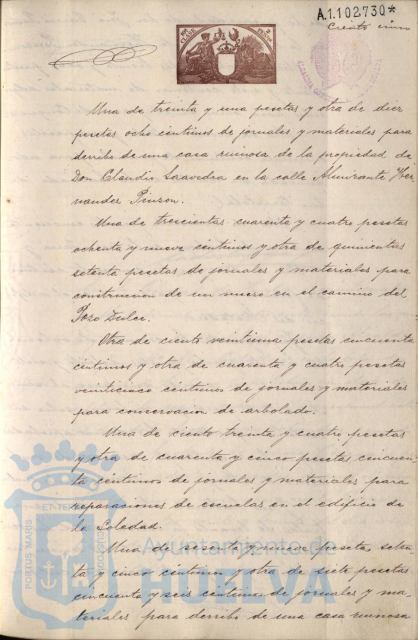 A.1.102.730*
Ciento cinco
Una de treinta y una pesetas y otra de diez
pesetas ocho céntimos de jornales y materiales para
derribo de una casa ruinosa de la propiedad de
Don Claudio Saavedra en la calle Almirante Her
nandez Pinzon.
Una de trescientas cuarenta y cuatro pesetas
ochenta y nueve céntimos y otra de quinientas
setenta pesetas de jornales y materiales para
construccion de un muro en el camino del
Pozo Dulce.
Otra de ciento veintiuna pesetas cincuenta
céntimos y otra de cuarenta y cuatro pesetas
veinticinco céntimos de jornales y materiales
para conservacion de arbolado.
Una de ciento treinta y cuatro pesetas
y otra de cuarenta y cinco pesetas cincuen
ta céntimos de jornales y materiales para
reparaciones de escuelas en el edificio de
la Soledad.
Una de sesenta y nueve pesetas, seten
ta y cinco céntimos y otra de siete pesetas
cincuenta y seis céntimos de jornales y ma-
teriales para derribo de una casa ruinosa
Ayuntamiento de
HUELVA
PORTUS MARIS
ET TERRÆ
CUSTODIA